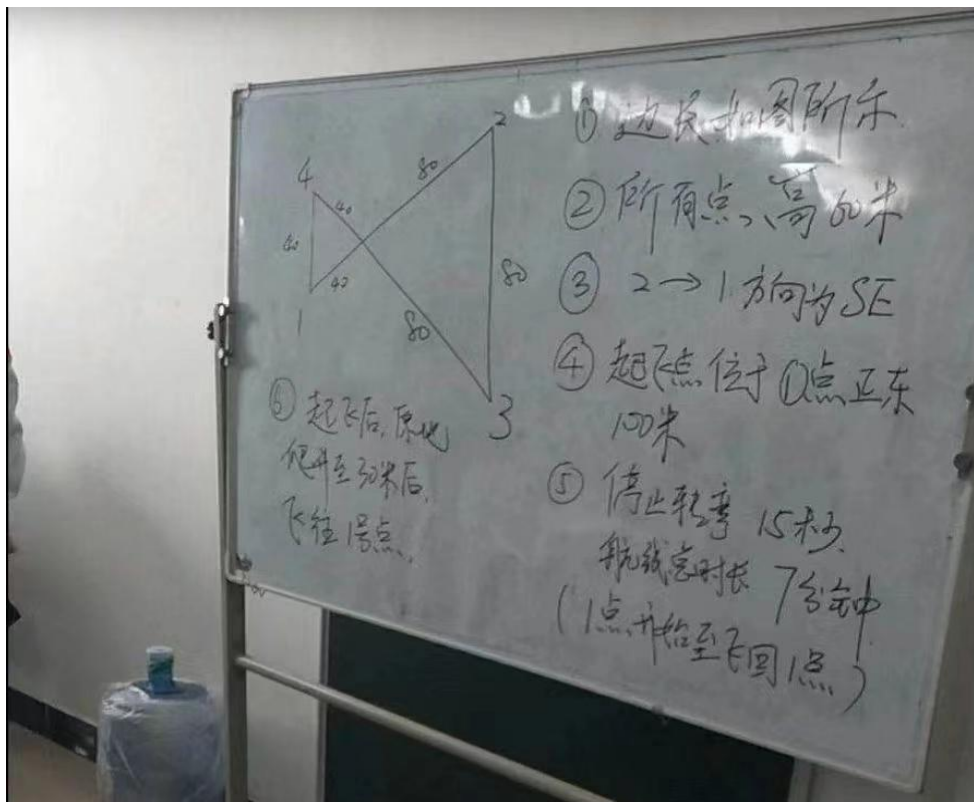 4
40
40
40
1
80
2
80
80
3
① 边长如图所示.
② 所有点、高60米
③ 2→1方向为SE
④ 起飞点位于①点正东
100米
⑤ 停止转弯 15秒.
航线总时长 7分钟
(1点开始至飞回1点)
⑥ 起飞后,原地
爬升至30米后,
飞往1号点.